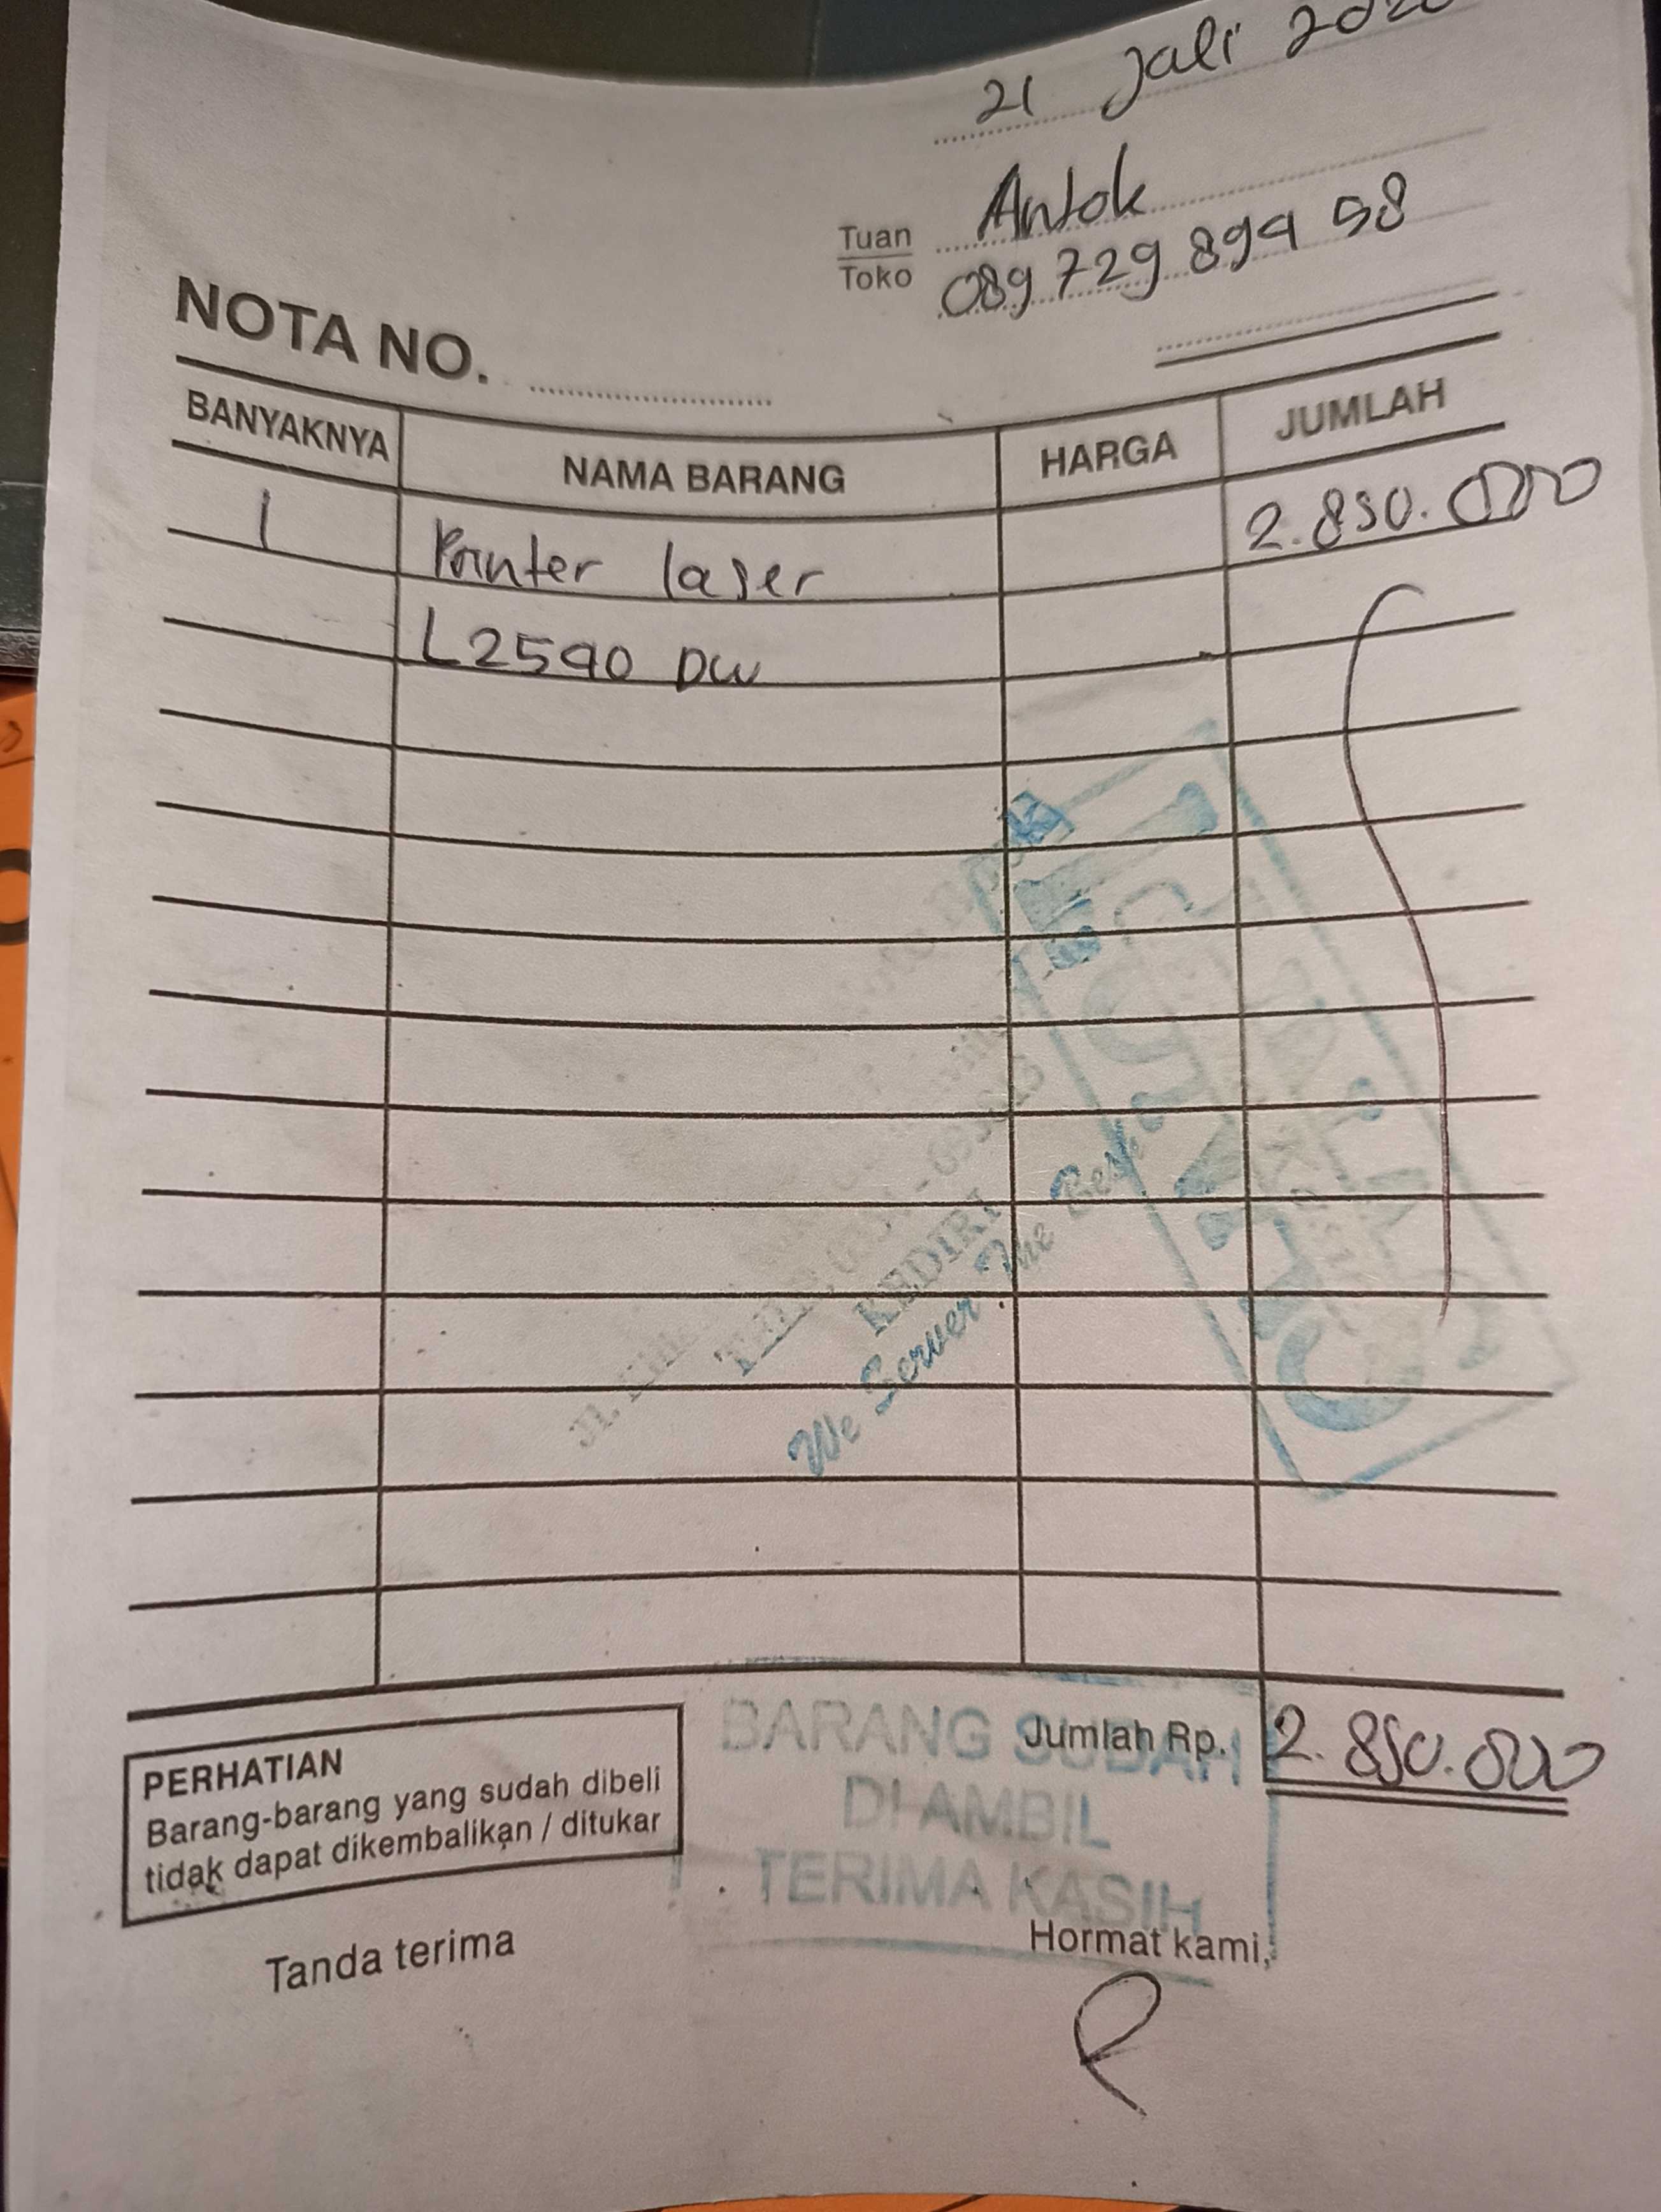 21 Juli
Antok
Tuan
Toko
089 729 899 58
NOTA NO.
BANYAKNYA NAMA BARANG HARGA JUMLAH
1 Printer laser 2.850.000
L2590 DW
KEDIRI
We Server The Best
Jumlah Rp. 2.850.000
BARANG SUDAH
DI AMBIL
TERIMA KASIH
PERHATIAN
Barang-barang yang sudah dibeli
tidak dapat dikembalikan / ditukar
Tanda terima
Hormat kami,